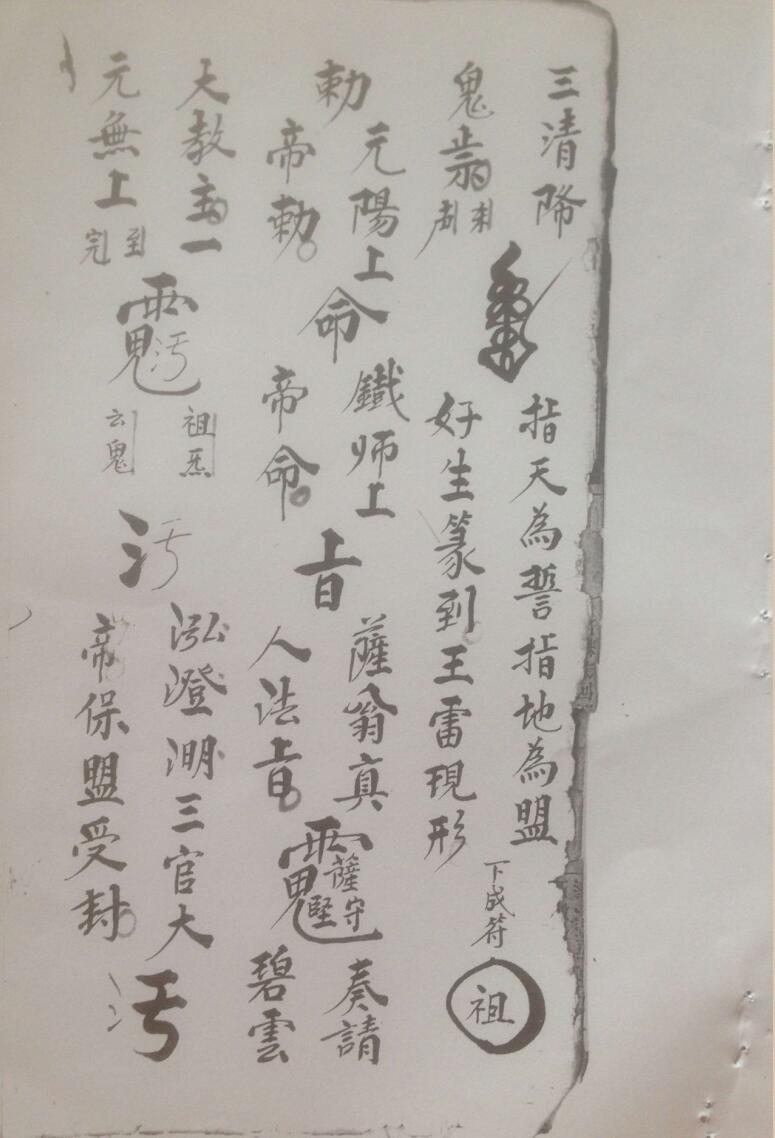 三清降
鬼
指天為誓指地為盟
好生篆到王雷現形
下成符
祖
勅
元陽上
帝勅
命
鐵师上
帝命
上旨
薩翁真
人法上旨
薩守
堅
奏請
碧雲
大教主一
元無上
到
完
汚
祖炁
云鬼
汚
泓澄渊三官大
帝保盟受封
汚